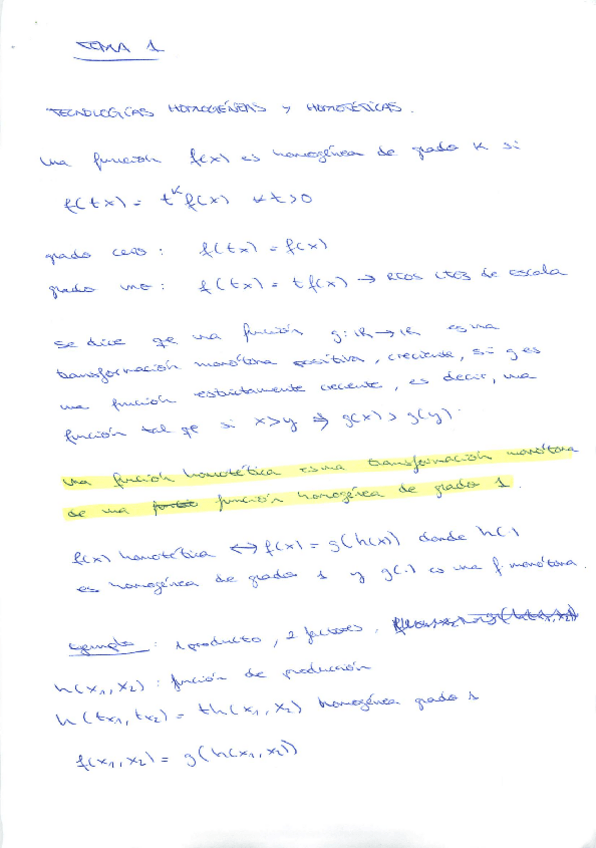 TEMA 1
TECNOLOGÍAS HOMOGÉNEAS Y HOMOTÉTICAS.
Una función f(x) es homogénea de grado K si
f(tx) = t^K f(x) ∀t>0
grado cero : f(tx) = f(x)
grado uno : f(tx) = t f(x) → RTOS CTES de escala
Se dice qe una función g: ℝ → ℝ es una
transformación monótona positiva, creciente, si g es
una función estrictamente creciente, es decir, una
función tal qe si x>y ⇒ g(x) > g(y).
Una función homotética es una transformación monótona
de una función homogénea de grado 1.
f(x) homotética ↔ f(x) = g(h(x)) donde h(.)
es homogénea de grado 1 y g(.) es una f. monótona.
Ejemplo : 1 producto, 2 factores.
h(x₁, x₂) : función de producción
h(tx₁, tx₂) = th(x₁, x₂) homogénea grado 1
f(x₁, x₂) = g(h(x₁, x₂))